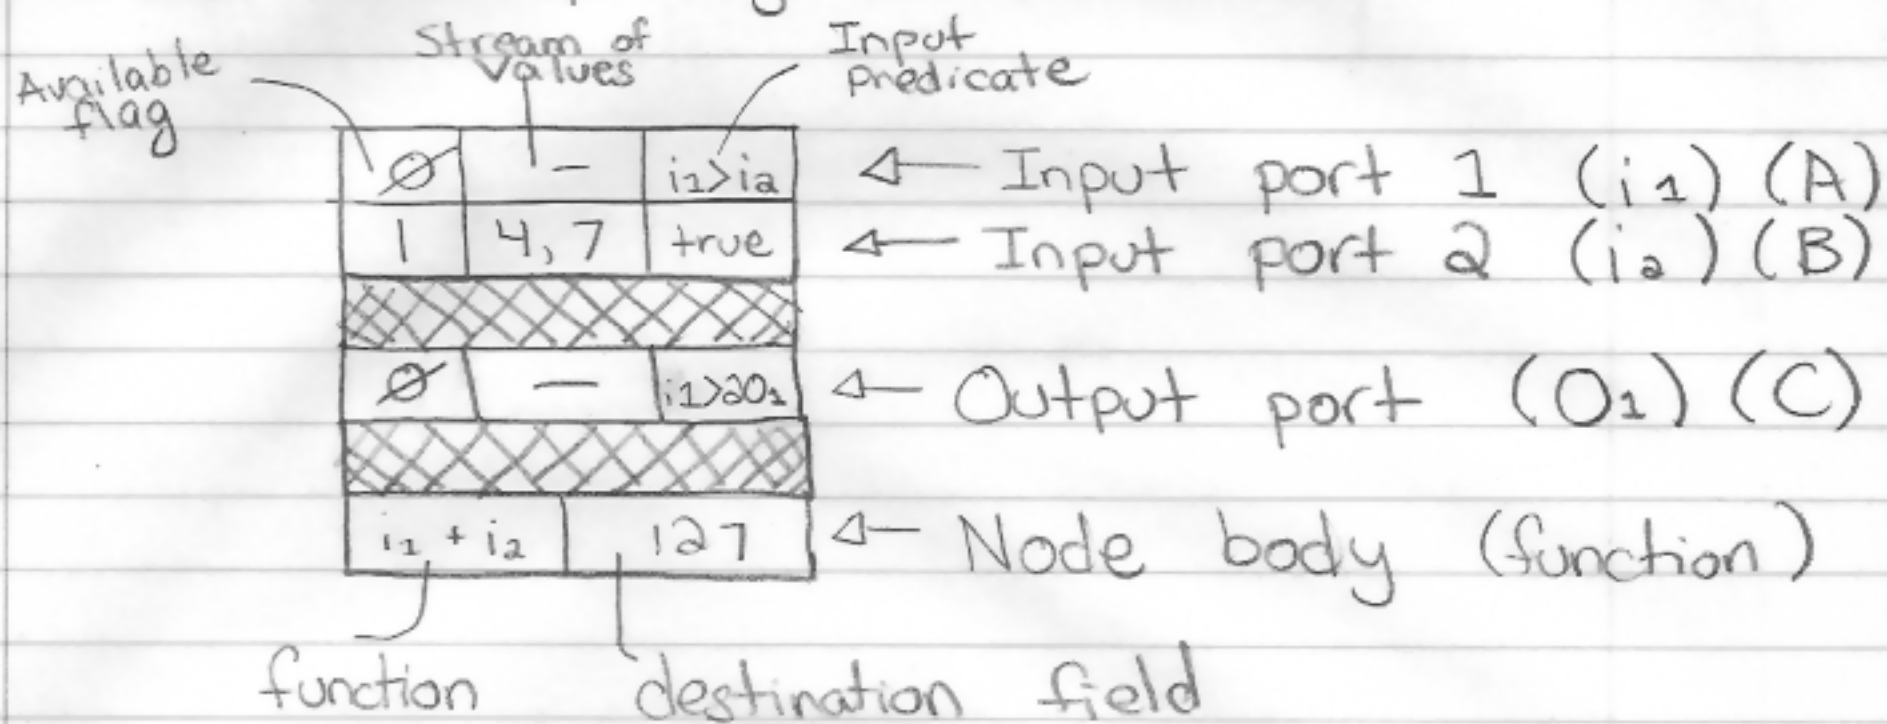 Available flag
Stream of Values
Input predicate
Ø – i1>i2 Input port 1 (i1) (A)
1 4, 7 true Input port 2 (i2) (B)
Ø — i1>2O1 Output port (O1) (C)
i1 + i2 127 Node body (function)
function destination field